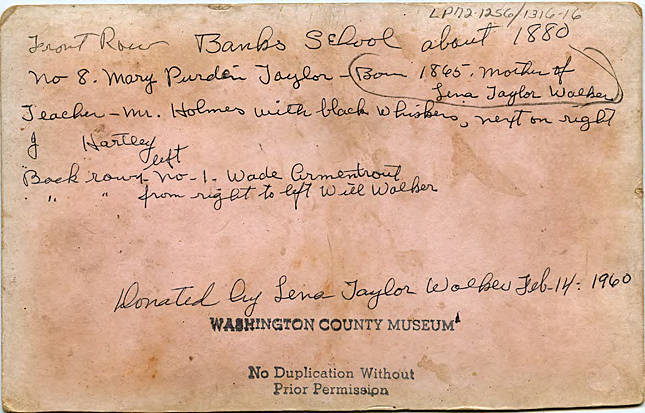 LP72-1256/1316-16
Front Row Banks School about 1880
No 8. Mary Purdin Taylor - Born 1865. Mother of
Lena Taylor Walker
Teacher - Mr. Holmes with black whiskers, next on right
J Hartley
left
Back row - No - 1 - Wade Armentrout
" " from right to left Will Walker
Donated by Lena Taylor Walker Feb - 14 : 1960
WASHINGTON COUNTY MUSEUM
No Duplication Without
Prior Permission